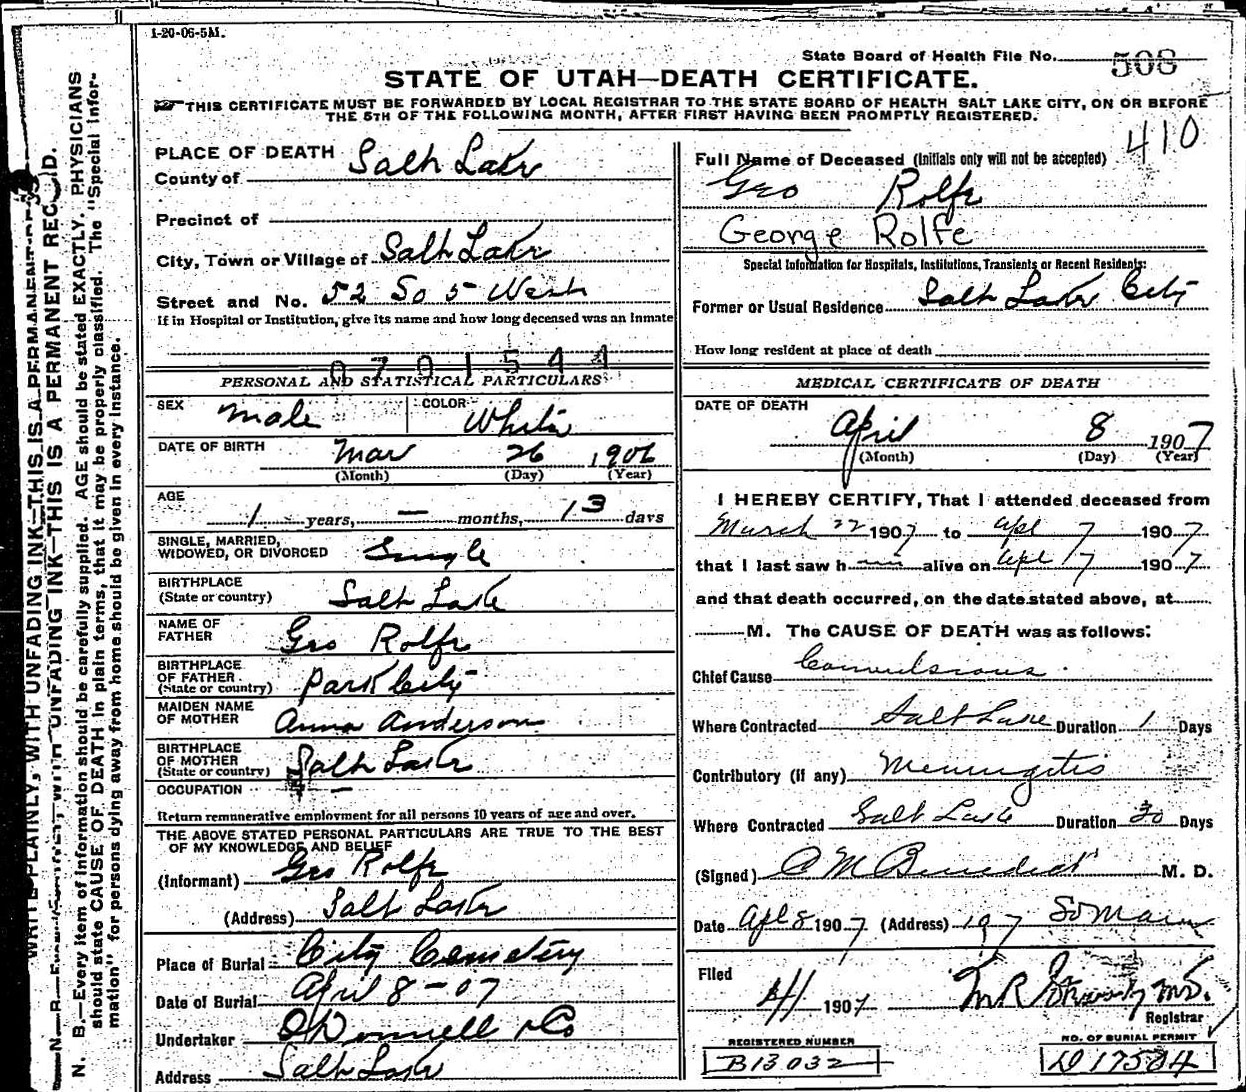 1-20-06-5M.
State Board of Health File No. 508
STATE OF UTAH—DEATH CERTIFICATE.
THIS CERTIFICATE MUST BE FORWARDED BY LOCAL REGISTRAR TO THE STATE BOARD OF HEALTH SALT LAKE CITY, ON OR BEFORE
THE 5TH OF THE FOLLOWING MONTH, AFTER FIRST HAVING BEEN PROMPTLY REGISTERED.
410
PLACE OF DEATH
County of Salt Lake
Precinct of
City, Town or Village of Salt Lake
Street and No. 52 So 5 West
If in Hospital or Institution, give its name and how long deceased was an inmate
0701544
PERSONAL AND STATISTICAL PARTICULARS
SEX Male COLOR White
DATE OF BIRTH Mar 26 1906
(Month) (Day) (Year)
AGE
1 years, — months, 13 days
SINGLE, MARRIED,
WIDOWED, OR DIVORCED Single
BIRTHPLACE
(State or country) Salt Lake
NAME OF
FATHER Geo Rolfe
BIRTHPLACE
OF FATHER
(State or country) Park City
MAIDEN NAME
OF MOTHER Anna Anderson
BIRTHPLACE
OF MOTHER
(State or country) Salt Lake
OCCUPATION —
Return remunerative employment for all persons 10 years of age and over.
THE ABOVE STATED PERSONAL PARTICULARS ARE TRUE TO THE BEST
OF MY KNOWLEDGE AND BELIEF
(Informant) Geo Rolfe
(Address) Salt Lake
Place of Burial City Cemetery
Date of Burial April 8-07
Undertaker O'Donnell & Co
Address Salt Lake
Full Name of Deceased (Initials only will not be accepted)
Geo Rolfe
George Rolfe
Special Information for Hospitals, Institutions, Transients or Recent Residents:
Former or Usual Residence Salt Lake City
How long resident at place of death
MEDICAL CERTIFICATE OF DEATH
DATE OF DEATH
April 8 1907
(Month) (Day) (Year)
I HEREBY CERTIFY, That I attended deceased from
March 22 1907 to apl 7 1907
that I last saw h im alive on apl 7 1907
and that death occurred, on the date stated above, at
M. The CAUSE OF DEATH was as follows:
Chief Cause Convulsions
Where Contracted Salt Lake Duration 1 Days
Contributory (if any) Meningitis
Where Contracted Salt Lake Duration 20 Days
(Signed) C M Benedict M. D.
Date Apl 8 1907 (Address) 197 So Main
Filed
1907 M.D.
Registrar
REGISTERED NUMBER
B13032
NO. OF BURIAL PERMIT
D 17584
WRITE PLAINLY, WITH UNFADING INK—THIS IS A PERMANENT RECORD.
N. B.—Every item of information should be carefully supplied. AGE should be stated EXACTLY. PHYSICIANS
should state CAUSE OF DEATH in plain terms, that it may be properly classified. The "Special Infor-
mation" for persons dying away from home should be given in every instance.